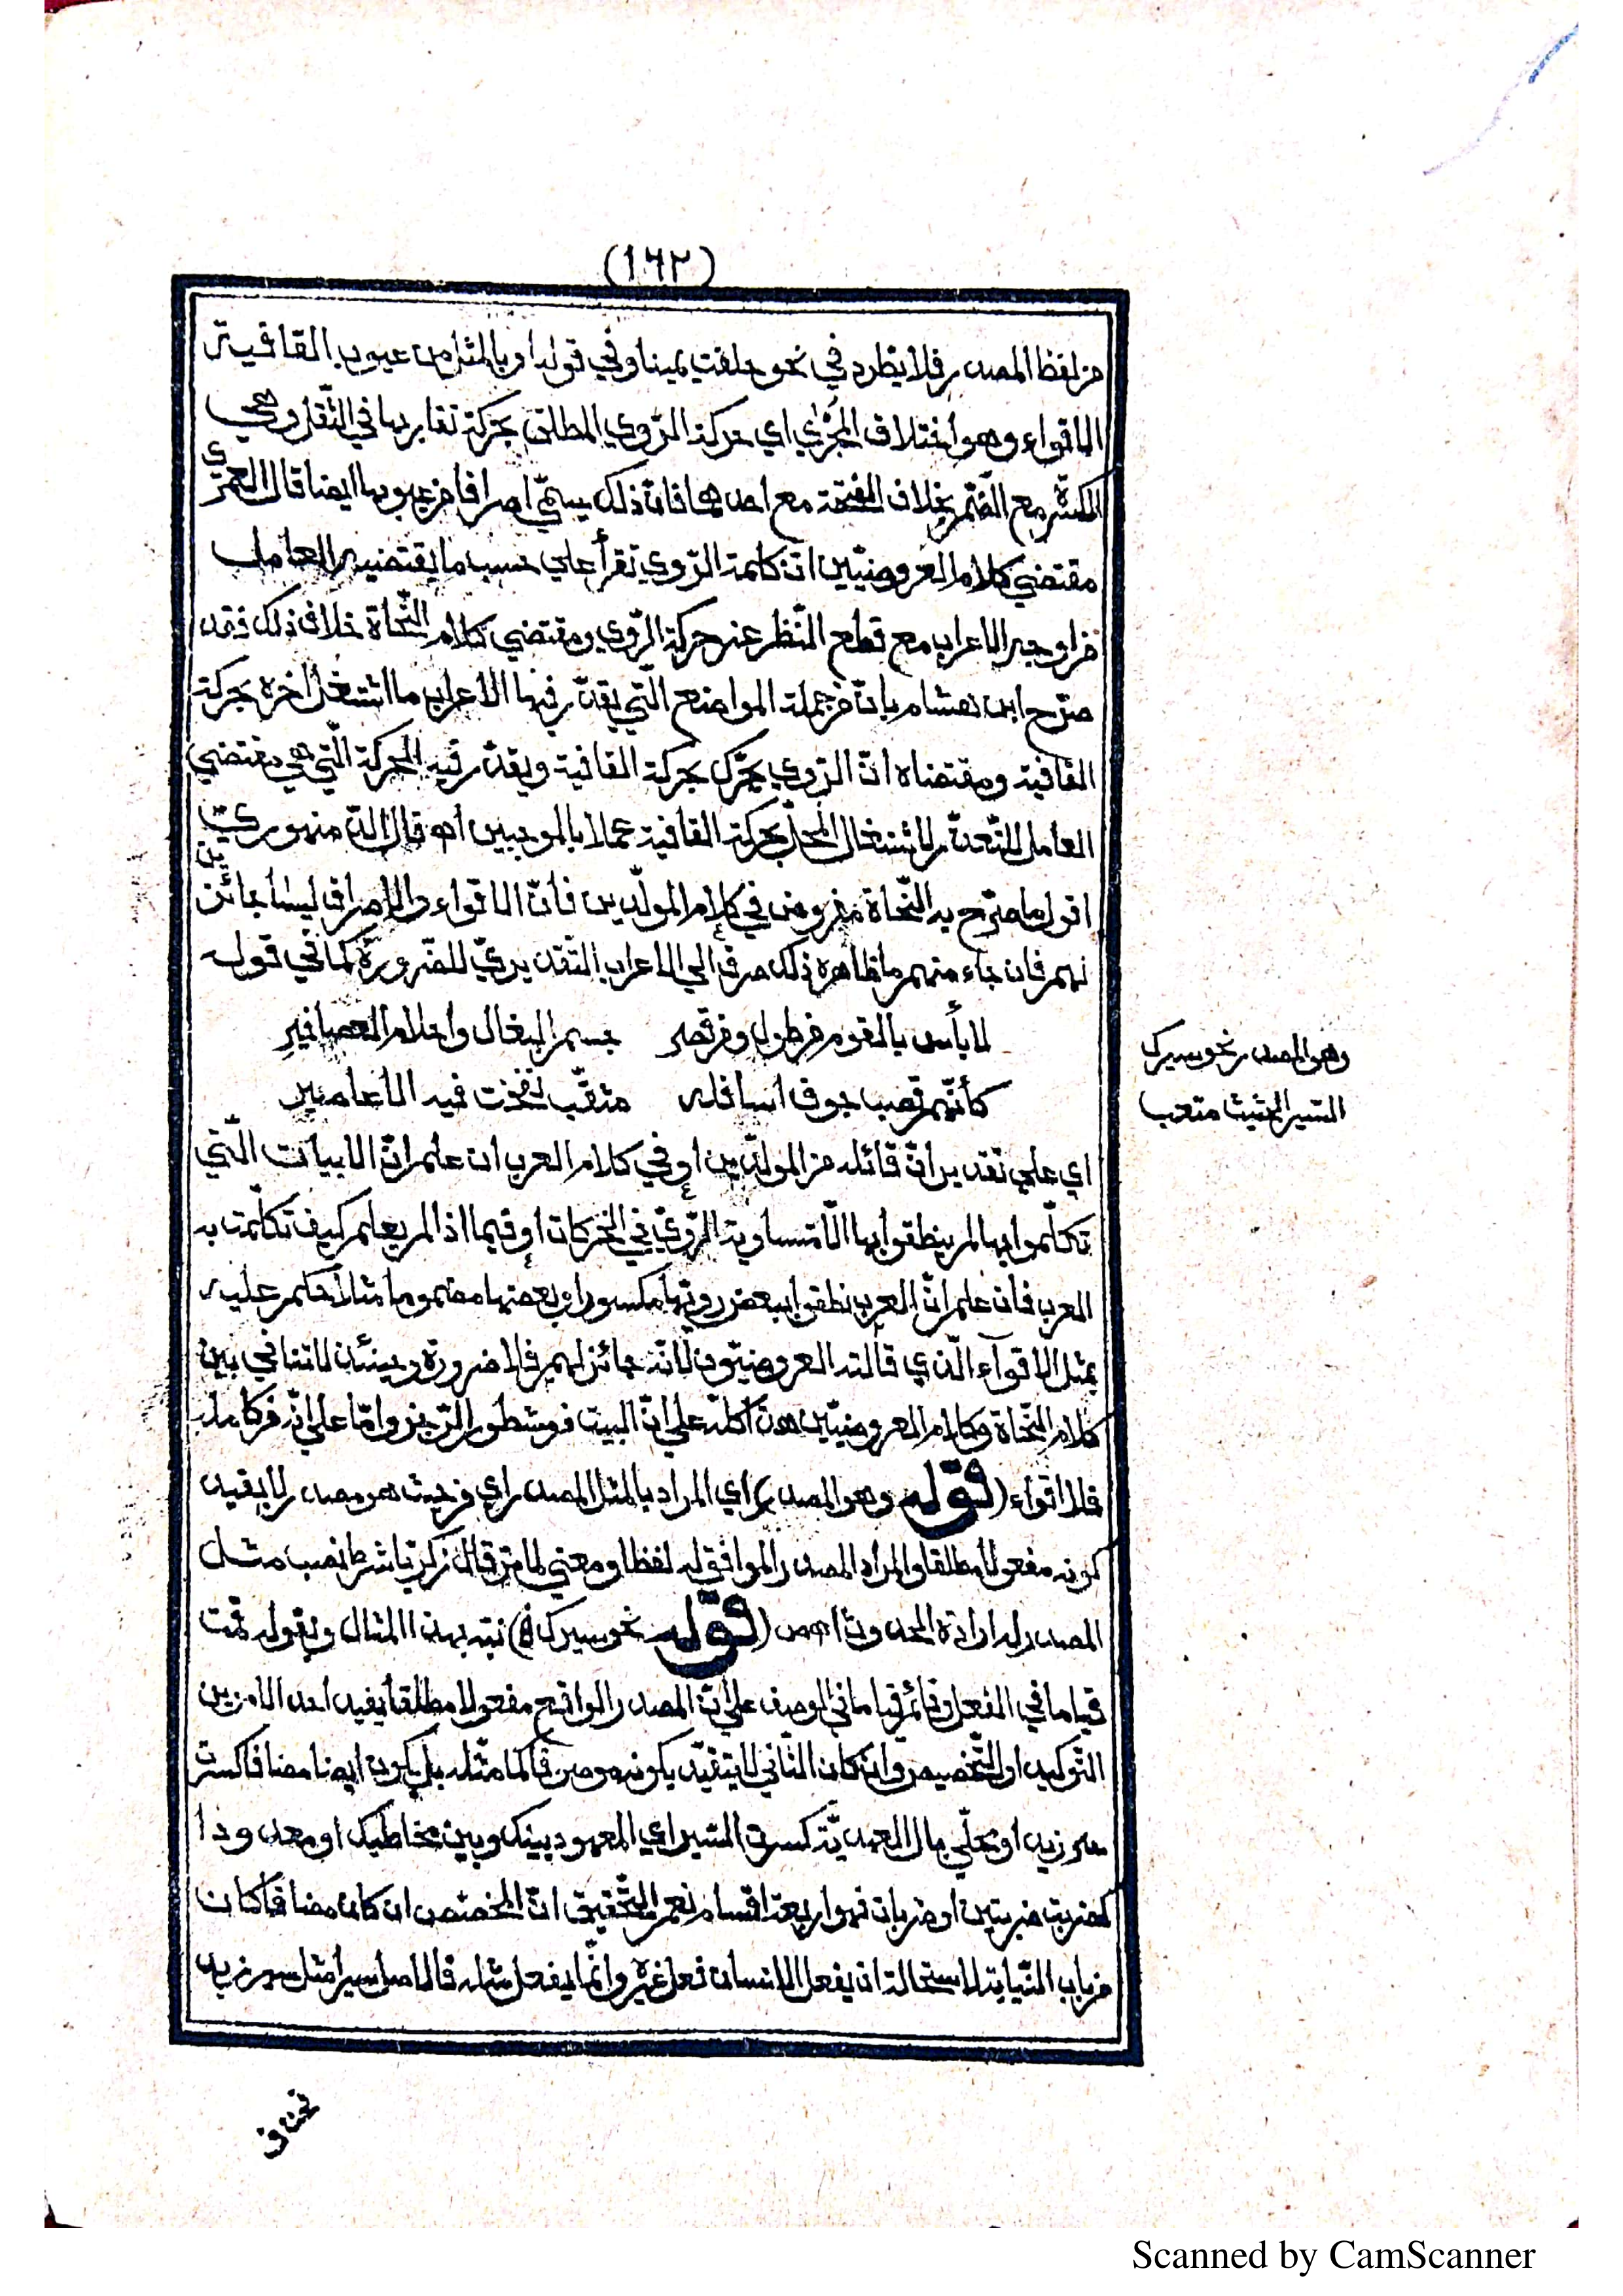 (١٦٢)
من لفظ المصدر فلا يطرد في نحو حلفت يمينا وفي قوله او بالمثل من عيوب القافية
الاقواء وهو اختلاف المجرٰي اي حركة الرّوي المطلق بحركة تقاربها في الثّقل وهي
الكسرة مع الضّم بخلاف الفتحة مع احدهما فانّ ذلك يسمّي اصرافا من عيوبها ايضا قال العمري
مقتضي كلام العروضيّين انّ كلمة الرّوي تقرأ علي حسب ما يقتضيه العامل
من اوجه الاعراب مع قطع النّظر عن حركة الرّوي ومقتضي كلام النّحاة خلاف ذلك فقد
صرّح ابن هشام بانّ من جملة المواضع الّتي يقدّر فيها الاعراب ما اشتغل اخره بحركة
القافية ومقتضاه انّ الرّوي يحرّك بحركة القافية ويقدّر فيه الحركة الّتي هي مقتضي
العامل للتّعذّر لاشتغال المحلّ بحركة القافية عملا بالموجبين اه قال الدمنهوري
اقول ما صرّح به النّحاة مفروض في كلام المولّدين فانّ الاقواء والاصراف ليسا بجائزين
لهم فان جاء منهم ما ظاهره ذلك صرف الي الاعراب التّقديريّ للضّرورة كما في قوله
لا بأس بالقوم من طول ومن قصر جسم البغال واحلام العصافيرِ
كأنّهم قصب جوف اسافله مثقّب نفخت فيه الاعاصير
اي علي تقدير انّ قائله من المولّدين او في كلام العرب ان علم انّ الابيات الّتي
تكلّموا بها لم ينطقوا بها الّا متساوية الرّويّ في الحركات او فيما اذا لم يعلم كيف تكلّمت به
العرب فان علم انّ العرب نطقوا ببعض رويّها مكسورا وبعضها مضموما مثلا حكم عليه
بمثل الاقواء الّذي قالته العروضيّون لانّه جائز لهم فلا ضرورة وحينئذ لا تنافي بين
كلام النّحاة وكلام العروضيّين هذا كلّه علي انّ البيت من مشطور الرّجز وامّا علي انّه من كامله
فلا اقواء (قوله وهو المصدر) اي المراد بالمثل المصدر اي من حيث هو مصدر لا بقيد
كونه مفعولا مطلقا والمراد المصدر الموافق له لفظا ومعني لما مرّ قال زكريّا شرط نصب مثل
المصدر له ارادة الحدوث اهص (قوله نحو سيرك الخ) نبّه بهذا المثال وبقوله قمت
قياما في الفعل وقائم قياما في الوصف علي انّ المصدر الواقع مفعولا مطلقا يفيد احد الامرين
التّوكيد او التّخصيص وان كان الثّاني لا يتقيّد بكونه موصوفا كما مثّله بل يكون ايضا مضافا كسرت
سير زيد او محلّي بال العهديّة كسرت السّير اي المعهود بينك وبين مخاطبك او معدودا
كضربت ضربتين او ضربات فهو اربعة اقسام نعم التّحقيق انّ المختصّ ان كان مضافا كان
من باب النّيابة لاستحالة ان يفعل الانسان فعل غيره وانّما يفعل مثله فالاصل سيرا مثل سير زيد
وهو المصدر نحو سيرك
السّير الحثيث متعب